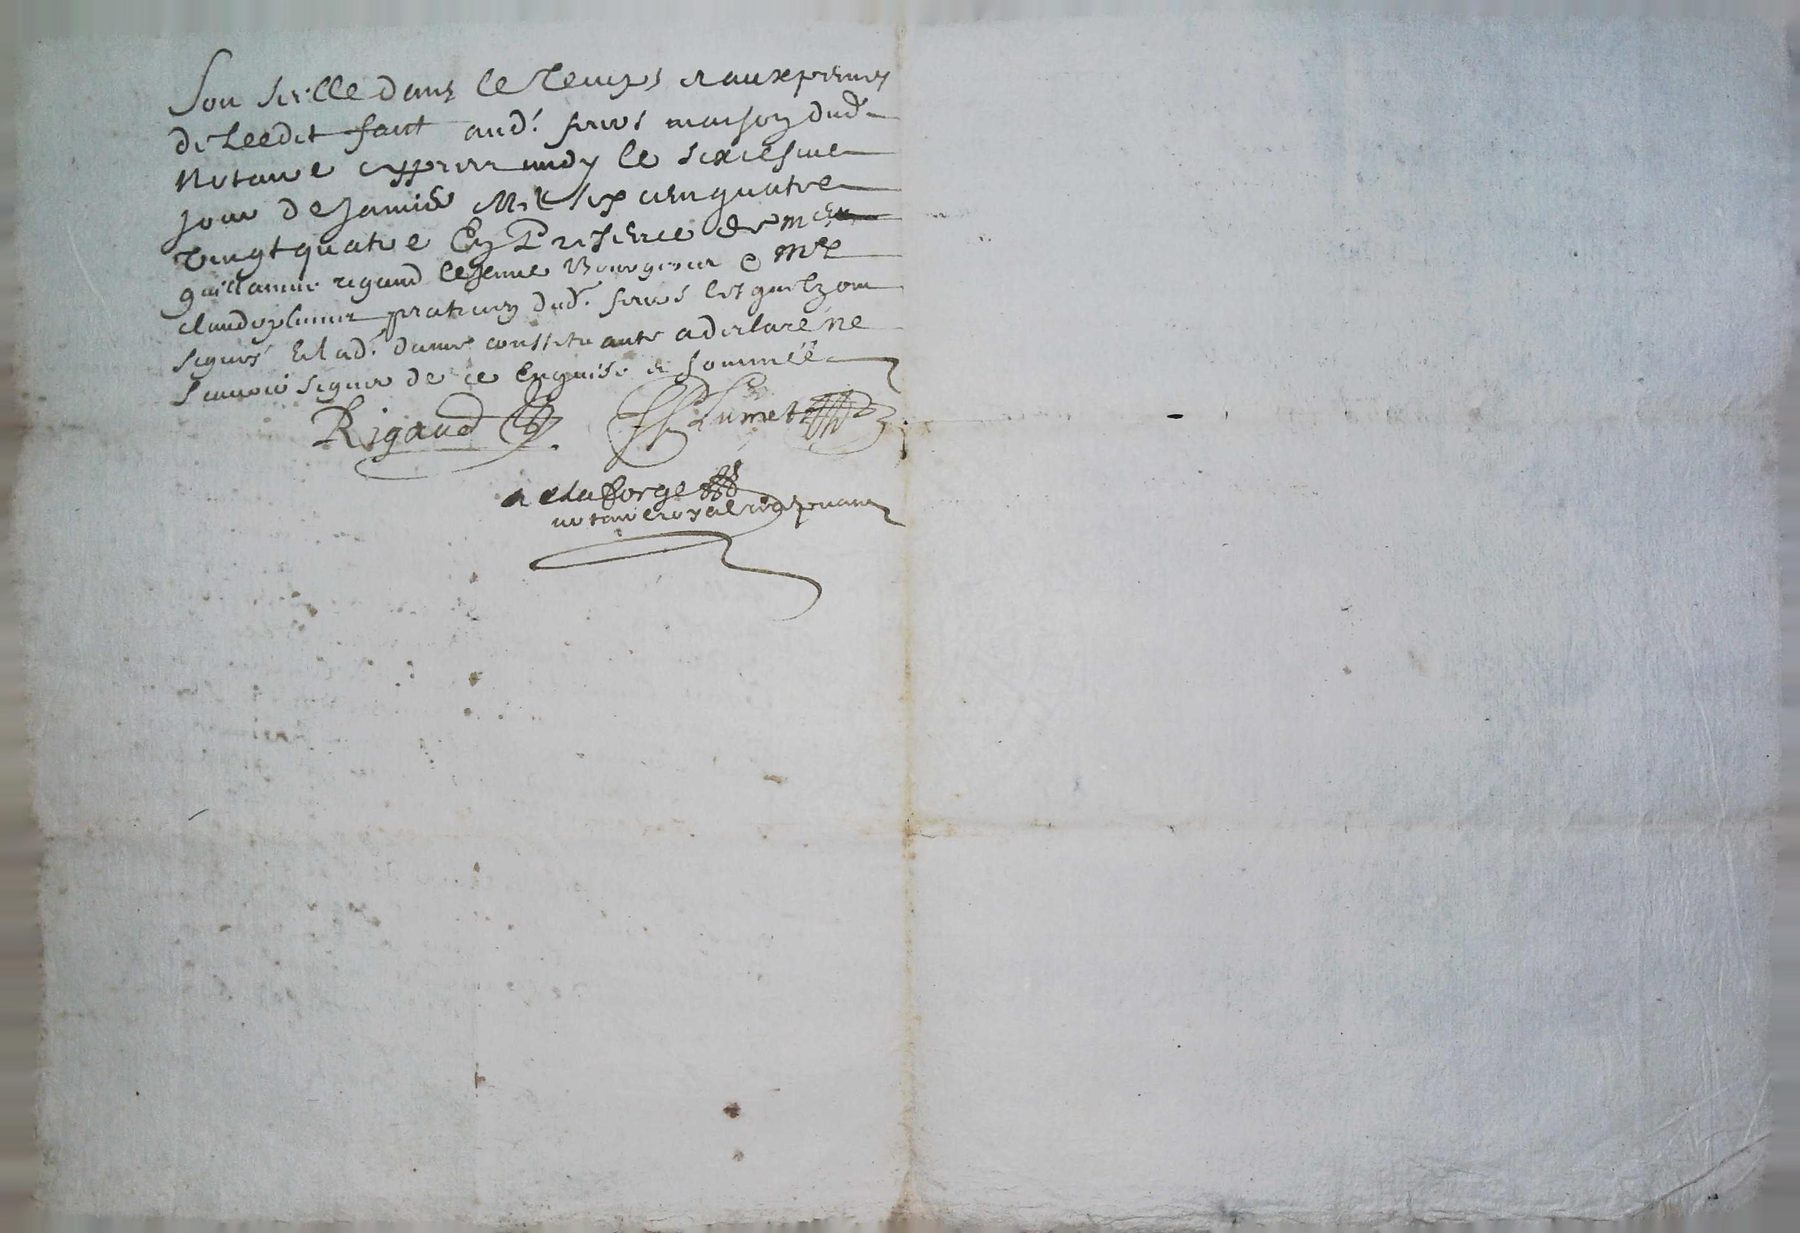 Son scelle dans le temps et aux peines
de Leedit fait aud. serves maison dud.
Notaire appres midy le sixiesme
jour de janvier Mil six cen quatre
vingt quatre En Presence de
guillaume rigaud le jeune Bourgeois e Mre
claude plumet praticien dud. serves lesquelz ont
signés Et lad. dame constituante a declare ne
scavoir signer de ce Enquise et sommée
Rigaud
Plumet
delaforge
notaire royal